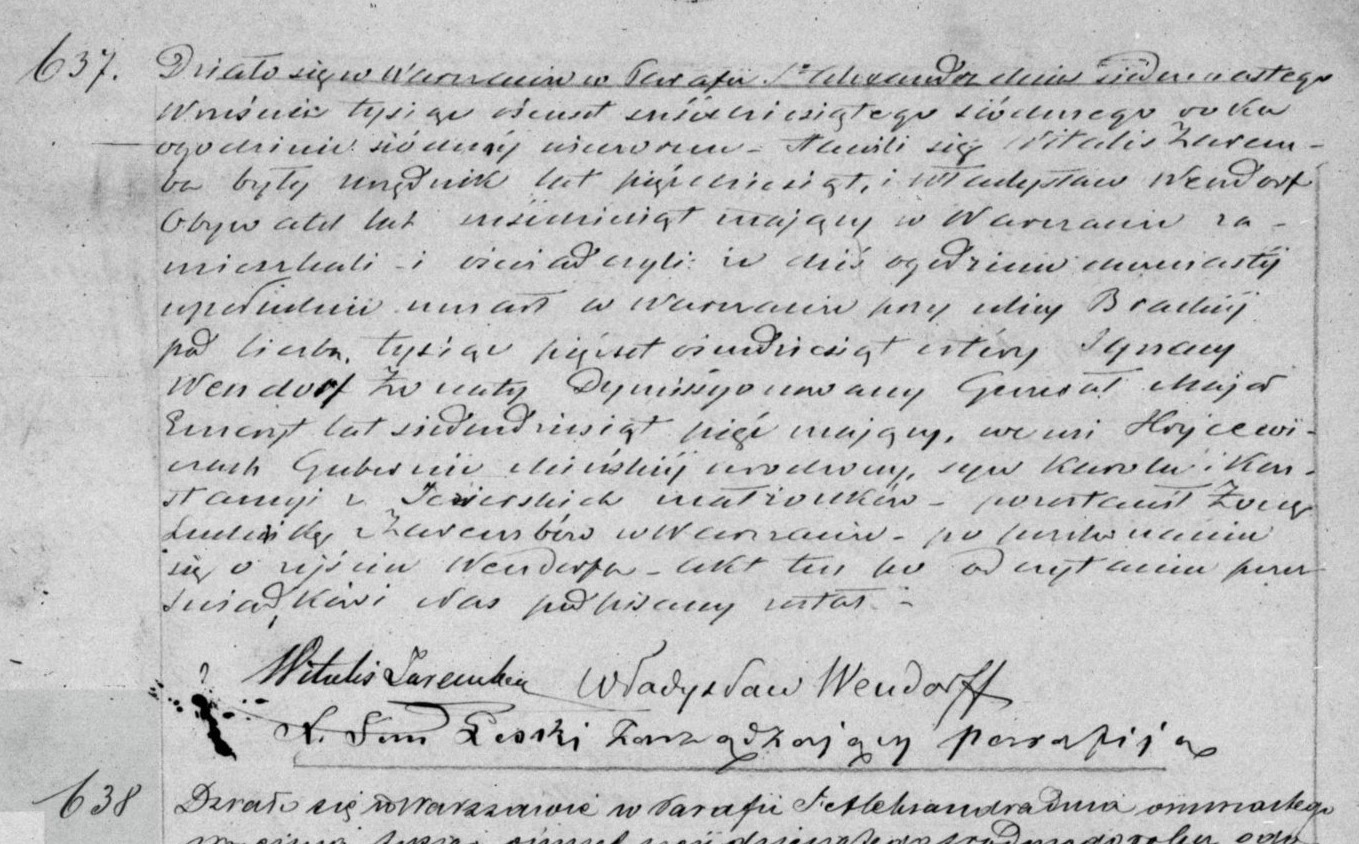 637. Działo się w Warszawie w Parafii Sgo Alexandra dnia siedemnastego
Września tysiąc ośmset sześćdziesiątego siódmego roku
o godzinie siódméj wieczorem - Stawili się Witalis Zarem-
ba były urzędnik lat pięćdziesiąt, i Władysław Wendorf
Obywatel lat sześćdziesiąt mający w Warszawie za-
mieszkali i oświadczyli: że dziś o godzinie dwunastéj
w południe umarł w Warszawie przy ulicy Brackiéj
pod liczbą tysiąc pięćset ośmdziesiąt cztery Ignacy
Wendorf Żonaty Dymissyonowany Generał Major
Emeryt lat siedmdziesiąt pięć mający, we wsi
Gubernii Mińskiéj urodzony, syn Karola i Kon-
stancyi z małżonków - pozostawił Żonę
Ludwikę z Zarembów w Warszawie - po przekonaniu
się o zejściu Wendorfa - Akt ten po odczytaniu przez
Świadków i Nas podpisany został. -
Witalis Zaremba Władysław Wendorff
X. Leski Zarządzający parafiją
638 Działo się w Warszawie w Parafii S Aleksandra dnia osmnastego
września tysiąc ośmset sześćdziesiątego siódmego roku o